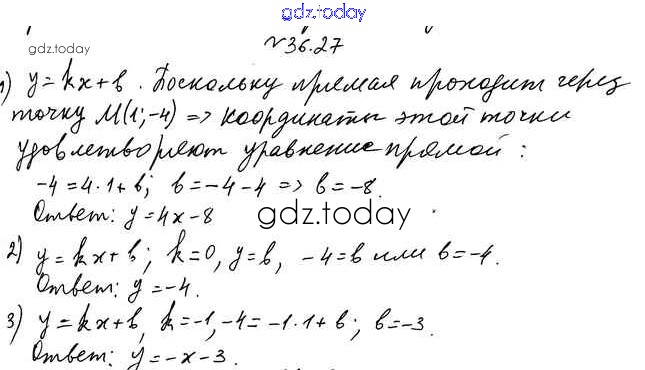 gdz.today
gdz.today
№36.27
1) y=kx+b. Поскольку прямая проходит через
точку M(1;-4) => координаты этой точки
удовлетворяют уравнение прямой:
-4=4·1+b; b=-4-4 => b=-8.
Ответ: y=4x-8
gdz.today
2) y=kx+b; k=0, y=b, -4=b или b=-4.
Ответ: y=-4.
3) y=kx+b, k=-1, -4=-1·1+b; b=-3.
Ответ: y=-x-3.